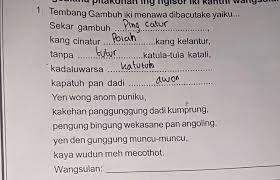 pitakonan ing ngisor iki kanthi wangsulan
1. Tembang Gambuh iki menawa dibacutake yaiku...
Sekar gambuh Ping catur
kang cinatur Polah kang kelantur,
tanpa tutur katula-tula katali,
kadaluwarsa katutuh
kapatuh pan dadi awon
Yen wong anom puniku,
kakehan panggunggung dadi kumprung,
pengung bingung wekasane pan angoling,
yen den gunggung muncu-muncu,
kaya wudun meh mecothot.
Wangsulan: